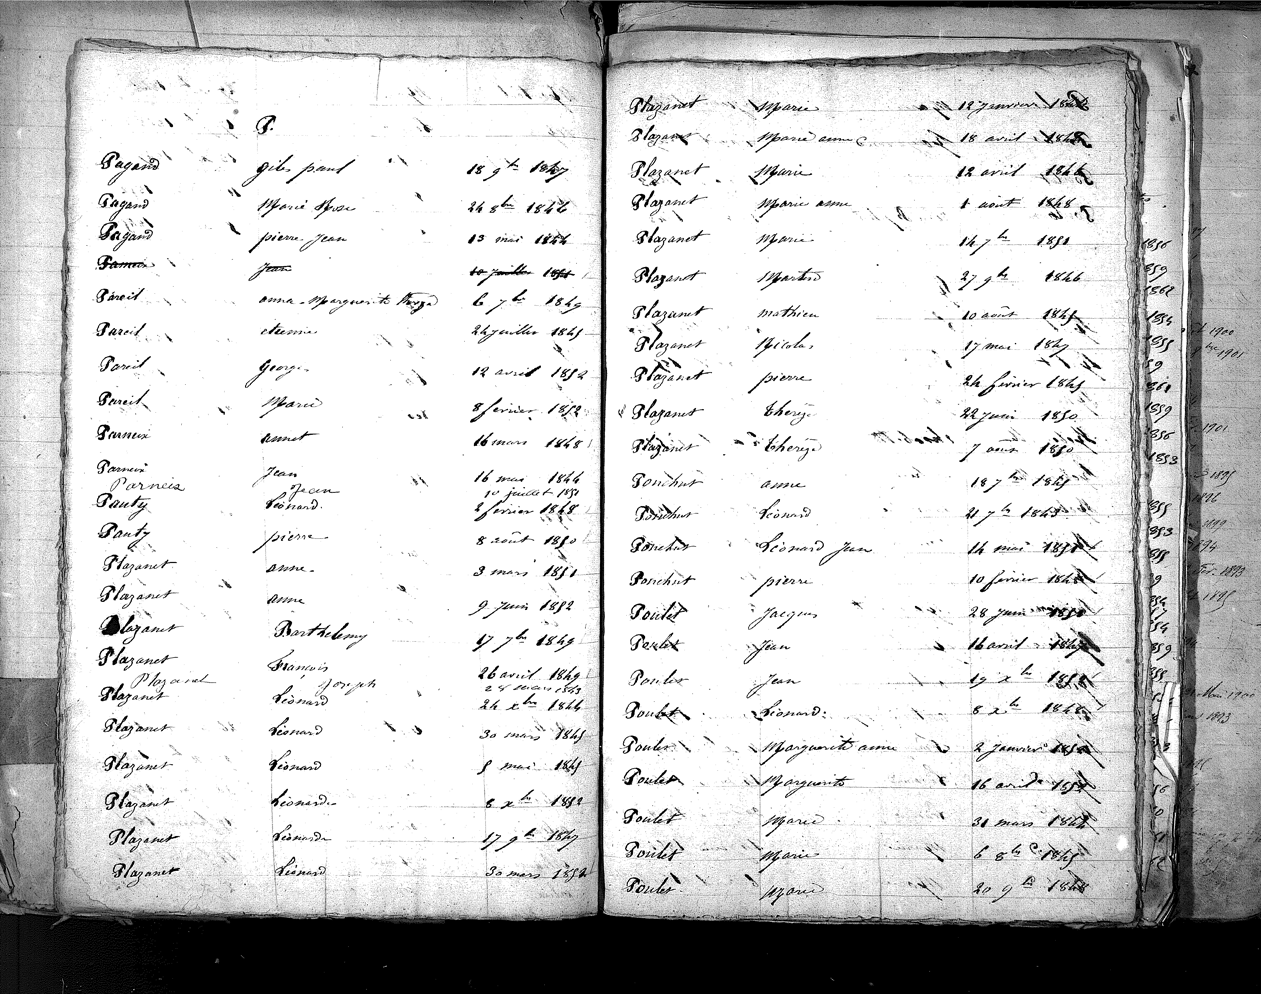 P.
Pagand gilès paul 18 9bre 1847
Pagand Marie Rose 24 8bre 1846
Pagand pierre Jean 13 mai 1844
Parneix Jean 10 juillet 1851
Pareil anna Marguerite 6 7bre 1849
Pareil etienne 24 juillet 1845
Pareil George 12 avril 1852
Pareil Marie 8 fevrier 1852
Parneix annet 16 mars 1848
Parneix Jean 16 mai 1844
Parneix Jean 10 juillet 1851
Pauty Léonard 2 fevrier 1848
Pauty pierre 8 août 1850
Plazanet anne 3 mars 1851
Plazanet anne 9 Juin 1852
Plazanet Barthelemy 17 7bre 1849
Plazanet François 26 avril 1849
Plazanet Joseph 28 mars 1843
Plazanet Léonard 24 xbre 1844
Plazanet Léonard 30 mars 1845
Plazanet Léonard 5 mai 1845
Plazanet Léonarde 8 xbre 1852
Plazanet Léonarde 17 9bre 1847
Plazanet Léonard 30 mars 1852
Plazanet Marie 12 Janvier
Plazanet Marie anne 18 avril 1843
Plazanet Marie 12 avril 1846
Plazanet Marie anne 1 août 1848
Plazanet Marie 14 7bre 1851
Plazanet Martin 27 9bre 1846
Plazanet mathieu 10 août 1845
Plazanet Nicolas 17 mai 1847
Plazanet pierre 24 fevrier 1845
Plazanet Therèze 22 Juin 1850
Plazanet Therèze 7 août 1850
Ponchut anne 18 7bre 1845
Ponchut Léonard 21 7bre 1843
Ponchut Léonard Jean 14 mai 1851
Ponchut pierre 10 fevrier 1848
Poulet Jacques 28 Juin 1850
Poulet Jean 16 avril 1847
Poulet Jean 19 xbre 1852
Poulet Léonard 8 xbre 1848
Poulet Marguerite anne 2 Janvier 1852
Poulet Marguerite 16 avril 1852
Poulet Marie 31 mars 1844
Poulet Marie 6 8bre 1845
Poulet Marie 20 9bre 1848